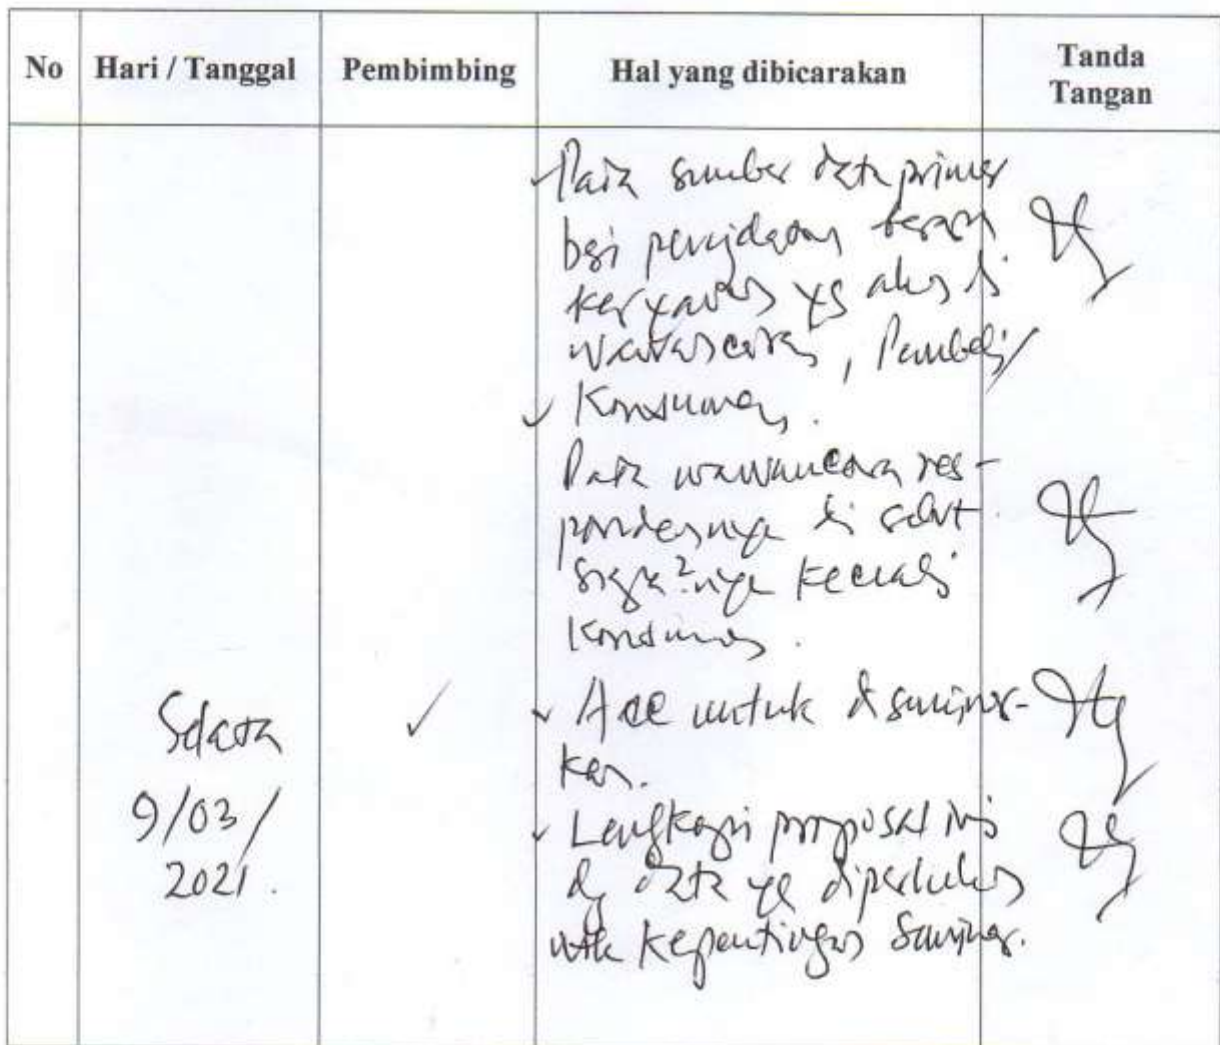 No Hari / Tanggal Pembimbing Hal yang dibicarakan Tanda Tangan
Pada sumber data primer
bagi
karyawan yg akan di
wawancara, Pembeli/
Konsumen.
Pada wawancara res-
pondennya di sebut
kecuali
Konsumen.
Selasa
9/03/
2021.
Acc untuk diseminar-
kan.
Lengkapi proposal ini
dg data yg diperlukan
utk kepentingan Seminar.